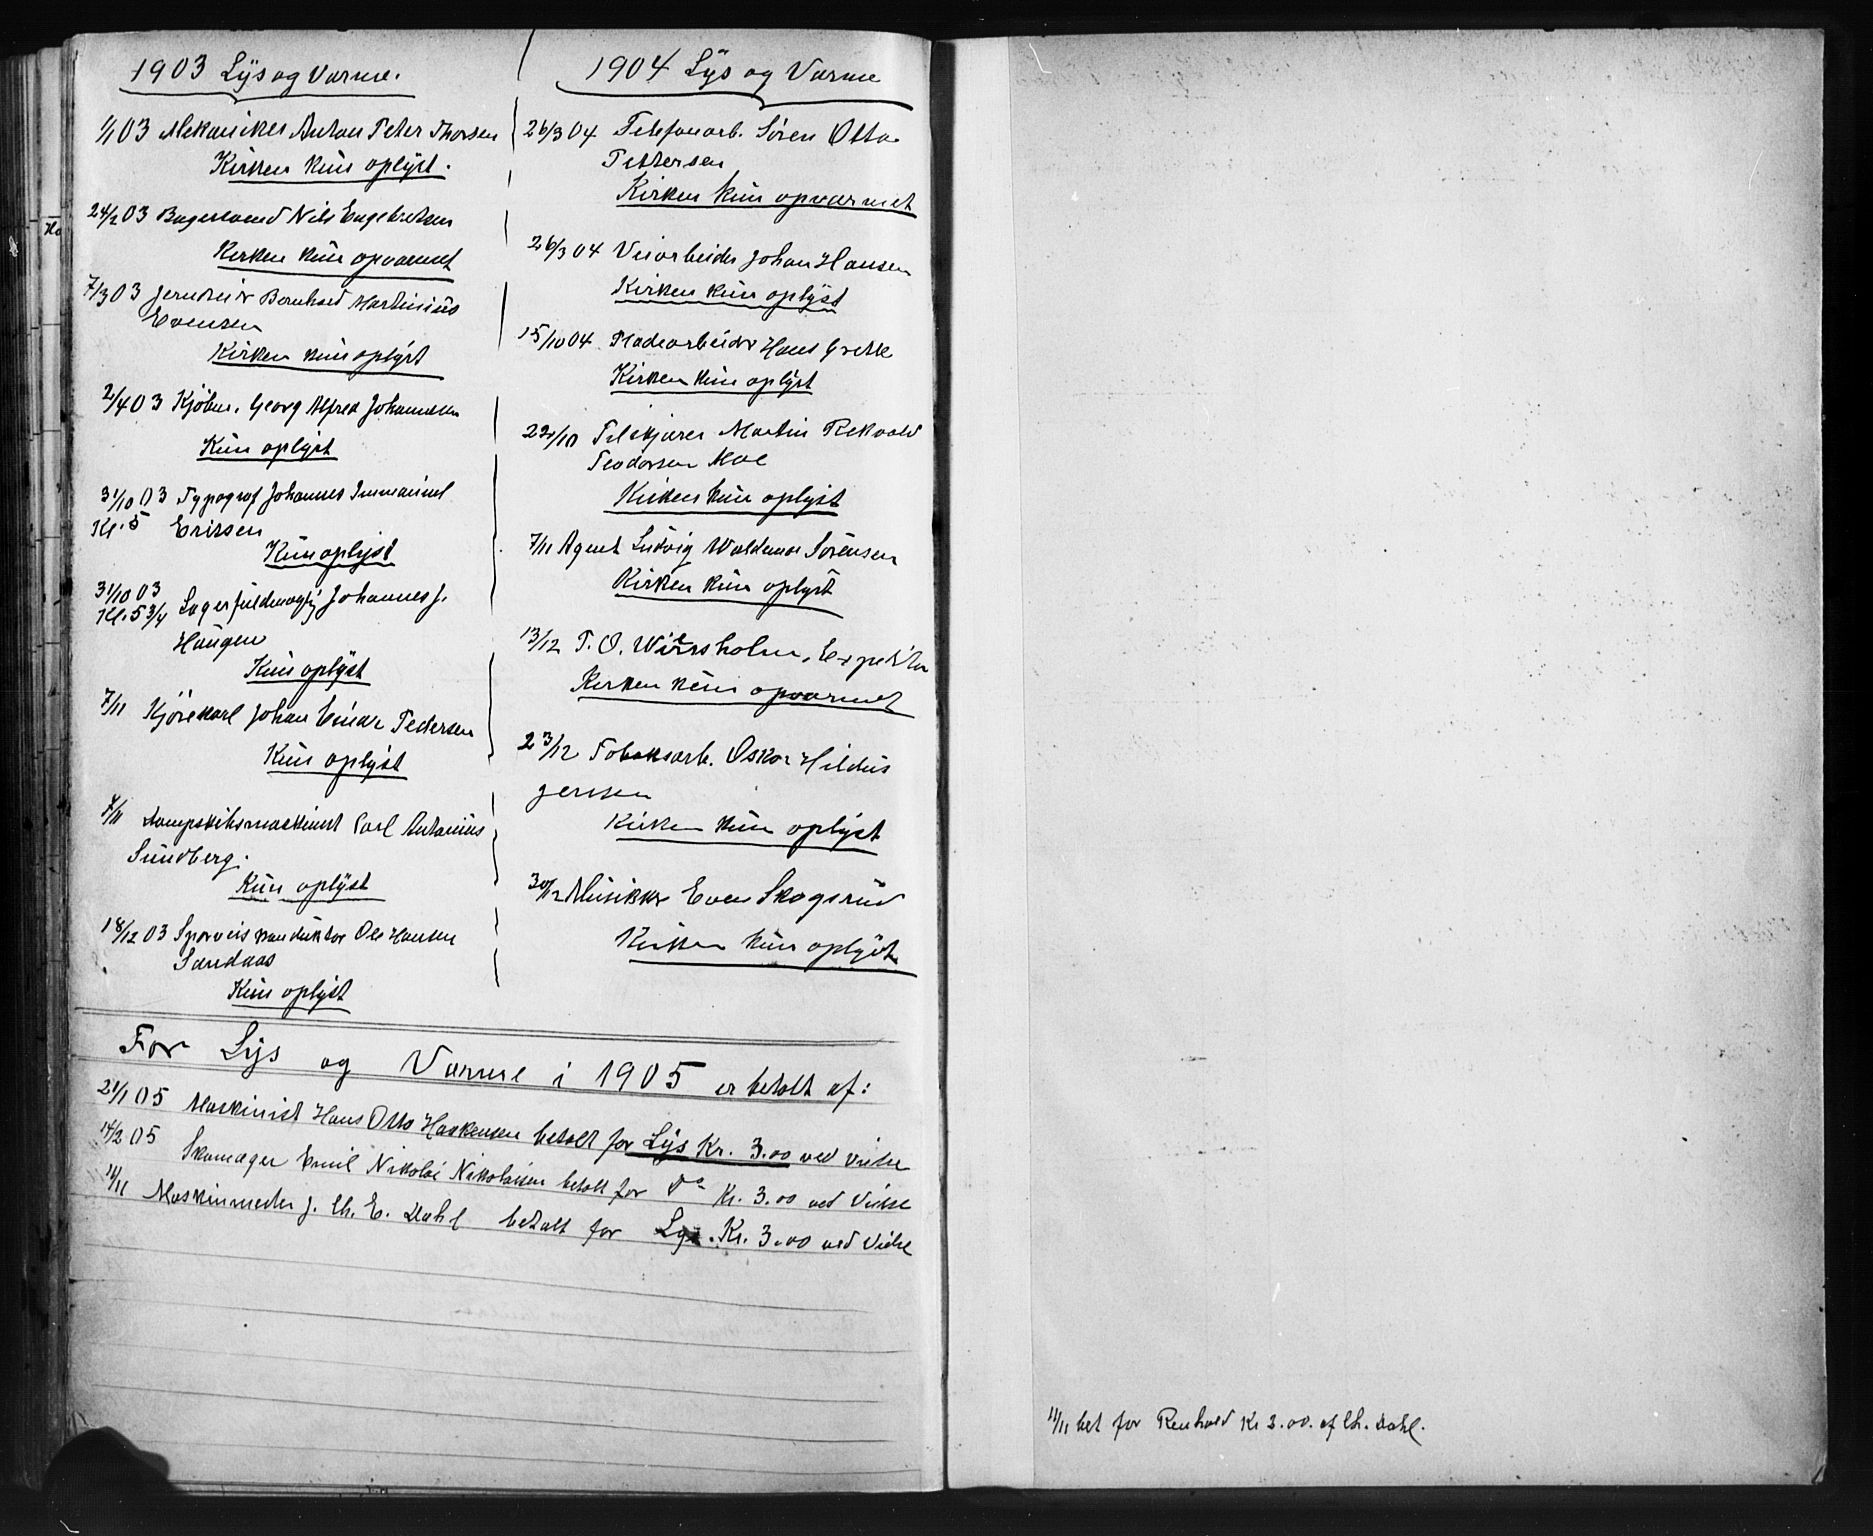 1903 Lys og Varme.
1/1 03 Mekaniker Anton Peter Thorsen
Kirken kun oplyst.
24/2 03 Bagersvend Nils Engebretsen
Kirken kun opvarmet
7/3 03 Bernhard Martinius
Evensen
Kirken kun oplyst
2/4 03 Kjøbm. Georg Alfred Johannesen
Kun oplyst
31/10 03 Typograf Johannes Immanuel
Kl. 5 Eriksen
Kun oplyst
31/10 03
Kl. 5 3/4 Lagerfuldmægtig Johannes J.
Haugen
Kun oplyst
7/11 Kjørekarl Johan Einar Pedersen
Kun oplyst
7/11 Dampskibsmaskinist Carl Antonius
Sundberg.
Kun oplyst
18/12 03 Sporveiskonduktør Ole Hansen
Sandaas
Kun oplyst
1904 Lys og Varme
26/3 04 Telefonarb. Søren Otto
Pettersen
Kirken kun opvarmet
26/3 04 Veiarbeider Johan Hansen
Kirken kun oplyst
15/10 04 Pladearbeider Hans
Kirken kun oplyst
22/10 Tilskjærer Martin
Teodorsen Moe
Kirken kun oplyst
7/11 Agent Ludvig Waldemar Sørensen
Kirken kun oplyst
13/12 T. O. Expeditør
Kirken kun opvarmet
23/12 Tobaksarb. Oskar Hildus
Jensen
Kirken kun oplyst
30/12 Musiker Even Skogsrud
Kirken kun oplyst
For Lys og Varme i 1905 er betalt af:
21/1 05 Maskinist Hans Otto Haakensen betalt for Lys Kr. 3.00 ved Vielse
14/2 05 Skomager Emil Nikolai Nikolaisen betalt for Do Kr. 3.00 ved Vielse
11/11 Maskinmester J. Ch. E. Dahl betalt for Lys. Kr. 3.00 ved Vielse
11/11 bet for Renhold Kr 3.00. af Ch. Dahl.